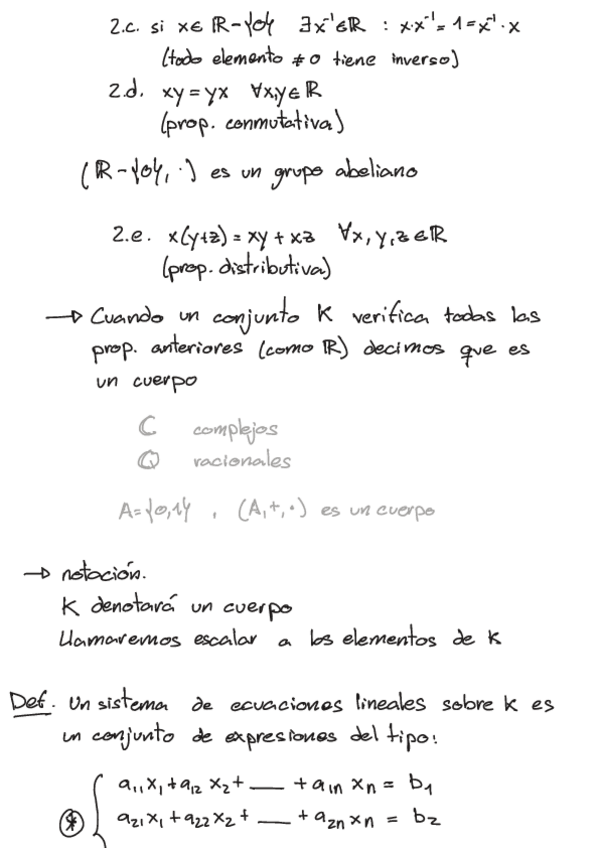 2.c. si x∈ ℝ-{0} ∃x⁻¹∈ℝ : x·x⁻¹=1=x⁻¹·x
(todo elemento ≠0 tiene inverso)
2.d. xy=yx ∀x,y∈ℝ
(prop. conmutativa)
(ℝ-{0}, ·) es un grupo abeliano
2.e. x(y+z)=xy+xz ∀x,y,z∈ℝ
(prop. distributiva)
→ Cuando un conjunto K verifica todas las
prop. anteriores (como ℝ) decimos que es
un cuerpo
ℂ complejos
ℚ racionales
A={0,1} , (A,+,·) es un cuerpo
→ notación.
K denotará un cuerpo
Llamaremos escalar a los elementos de K
Def. Un sistema de ecuaciones lineales sobre K es
un conjunto de expresiones del tipo:
a₁₁x₁+a₁₂x₂+ ___ +a₁ₙxₙ= b₁
(*) { a₂₁x₁+a₂₂x₂+ ___ +a₂ₙxₙ = b₂